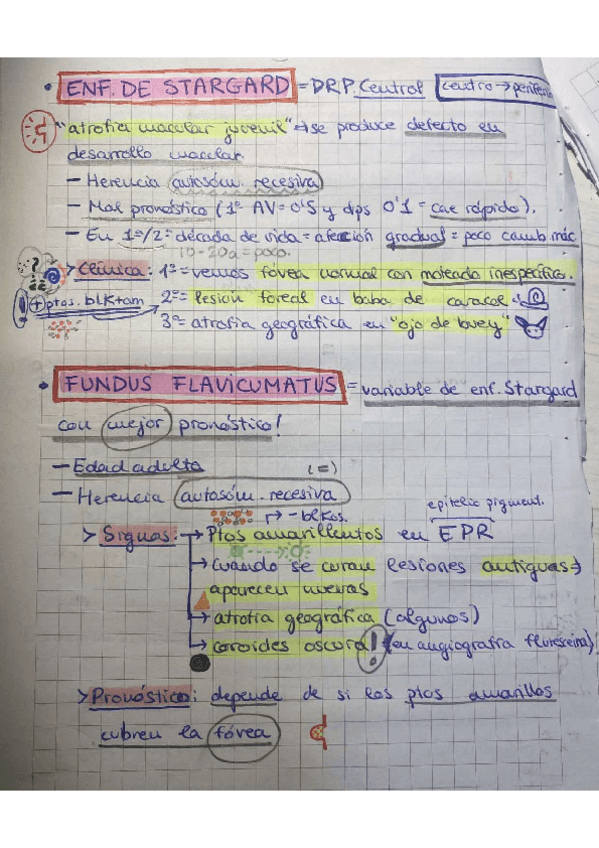 • ENF. DE STARGARD = DRP. Central centro → periferia
"atrofia macular juvenil" → se produce defecto en
desarrollo macular
- Herencia autosóm. recesiva
- Mal pronóstico (1º AV = 0'5 y dps 0'1 = cae rápido).
- En 1ª/2ª década de vida = afección gradual = poco camb. mác
10-20a = poco.
> Clínica: 1º = vemos fóvea normal con moteado inespecífico.
! + ptos. blk + am 2º = lesión foveal en baba de caracol
3º = atrofia geográfica en "ojo de buey"
• FUNDUS FLAVICUMATUS = variable de enf. Stargard
con mejor pronóstico!
- Edad adulta
(=)
- Herencia autosóm. recesiva
→ - blkos.
epitelio pigment.
> Signos: → Ptos amarillentos en EPR
→ Cuando se curan lesiones antiguas →
aparecen nuevas
→ atrofia geográfica (algunos)
→ coroides oscura! (en angiografía fluoresceína)
> Pronóstico: depende de si los ptos amarillos
cubren la fóvea